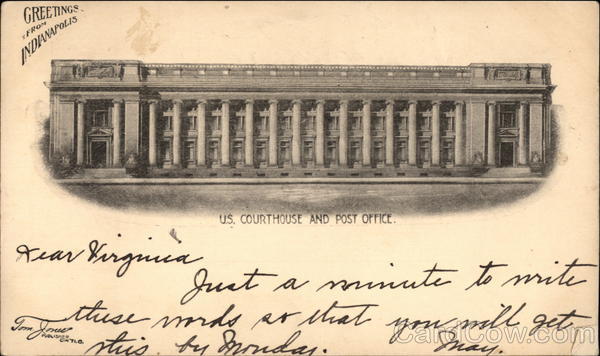 GREETINGS
FROM
INDIANAPOLIS
U.S. COURTHOUSE AND POST OFFICE.
Dear Virginia
Just a minute to write
these words so that you will get
this by Monday.
Tom Jones
CardCow.com